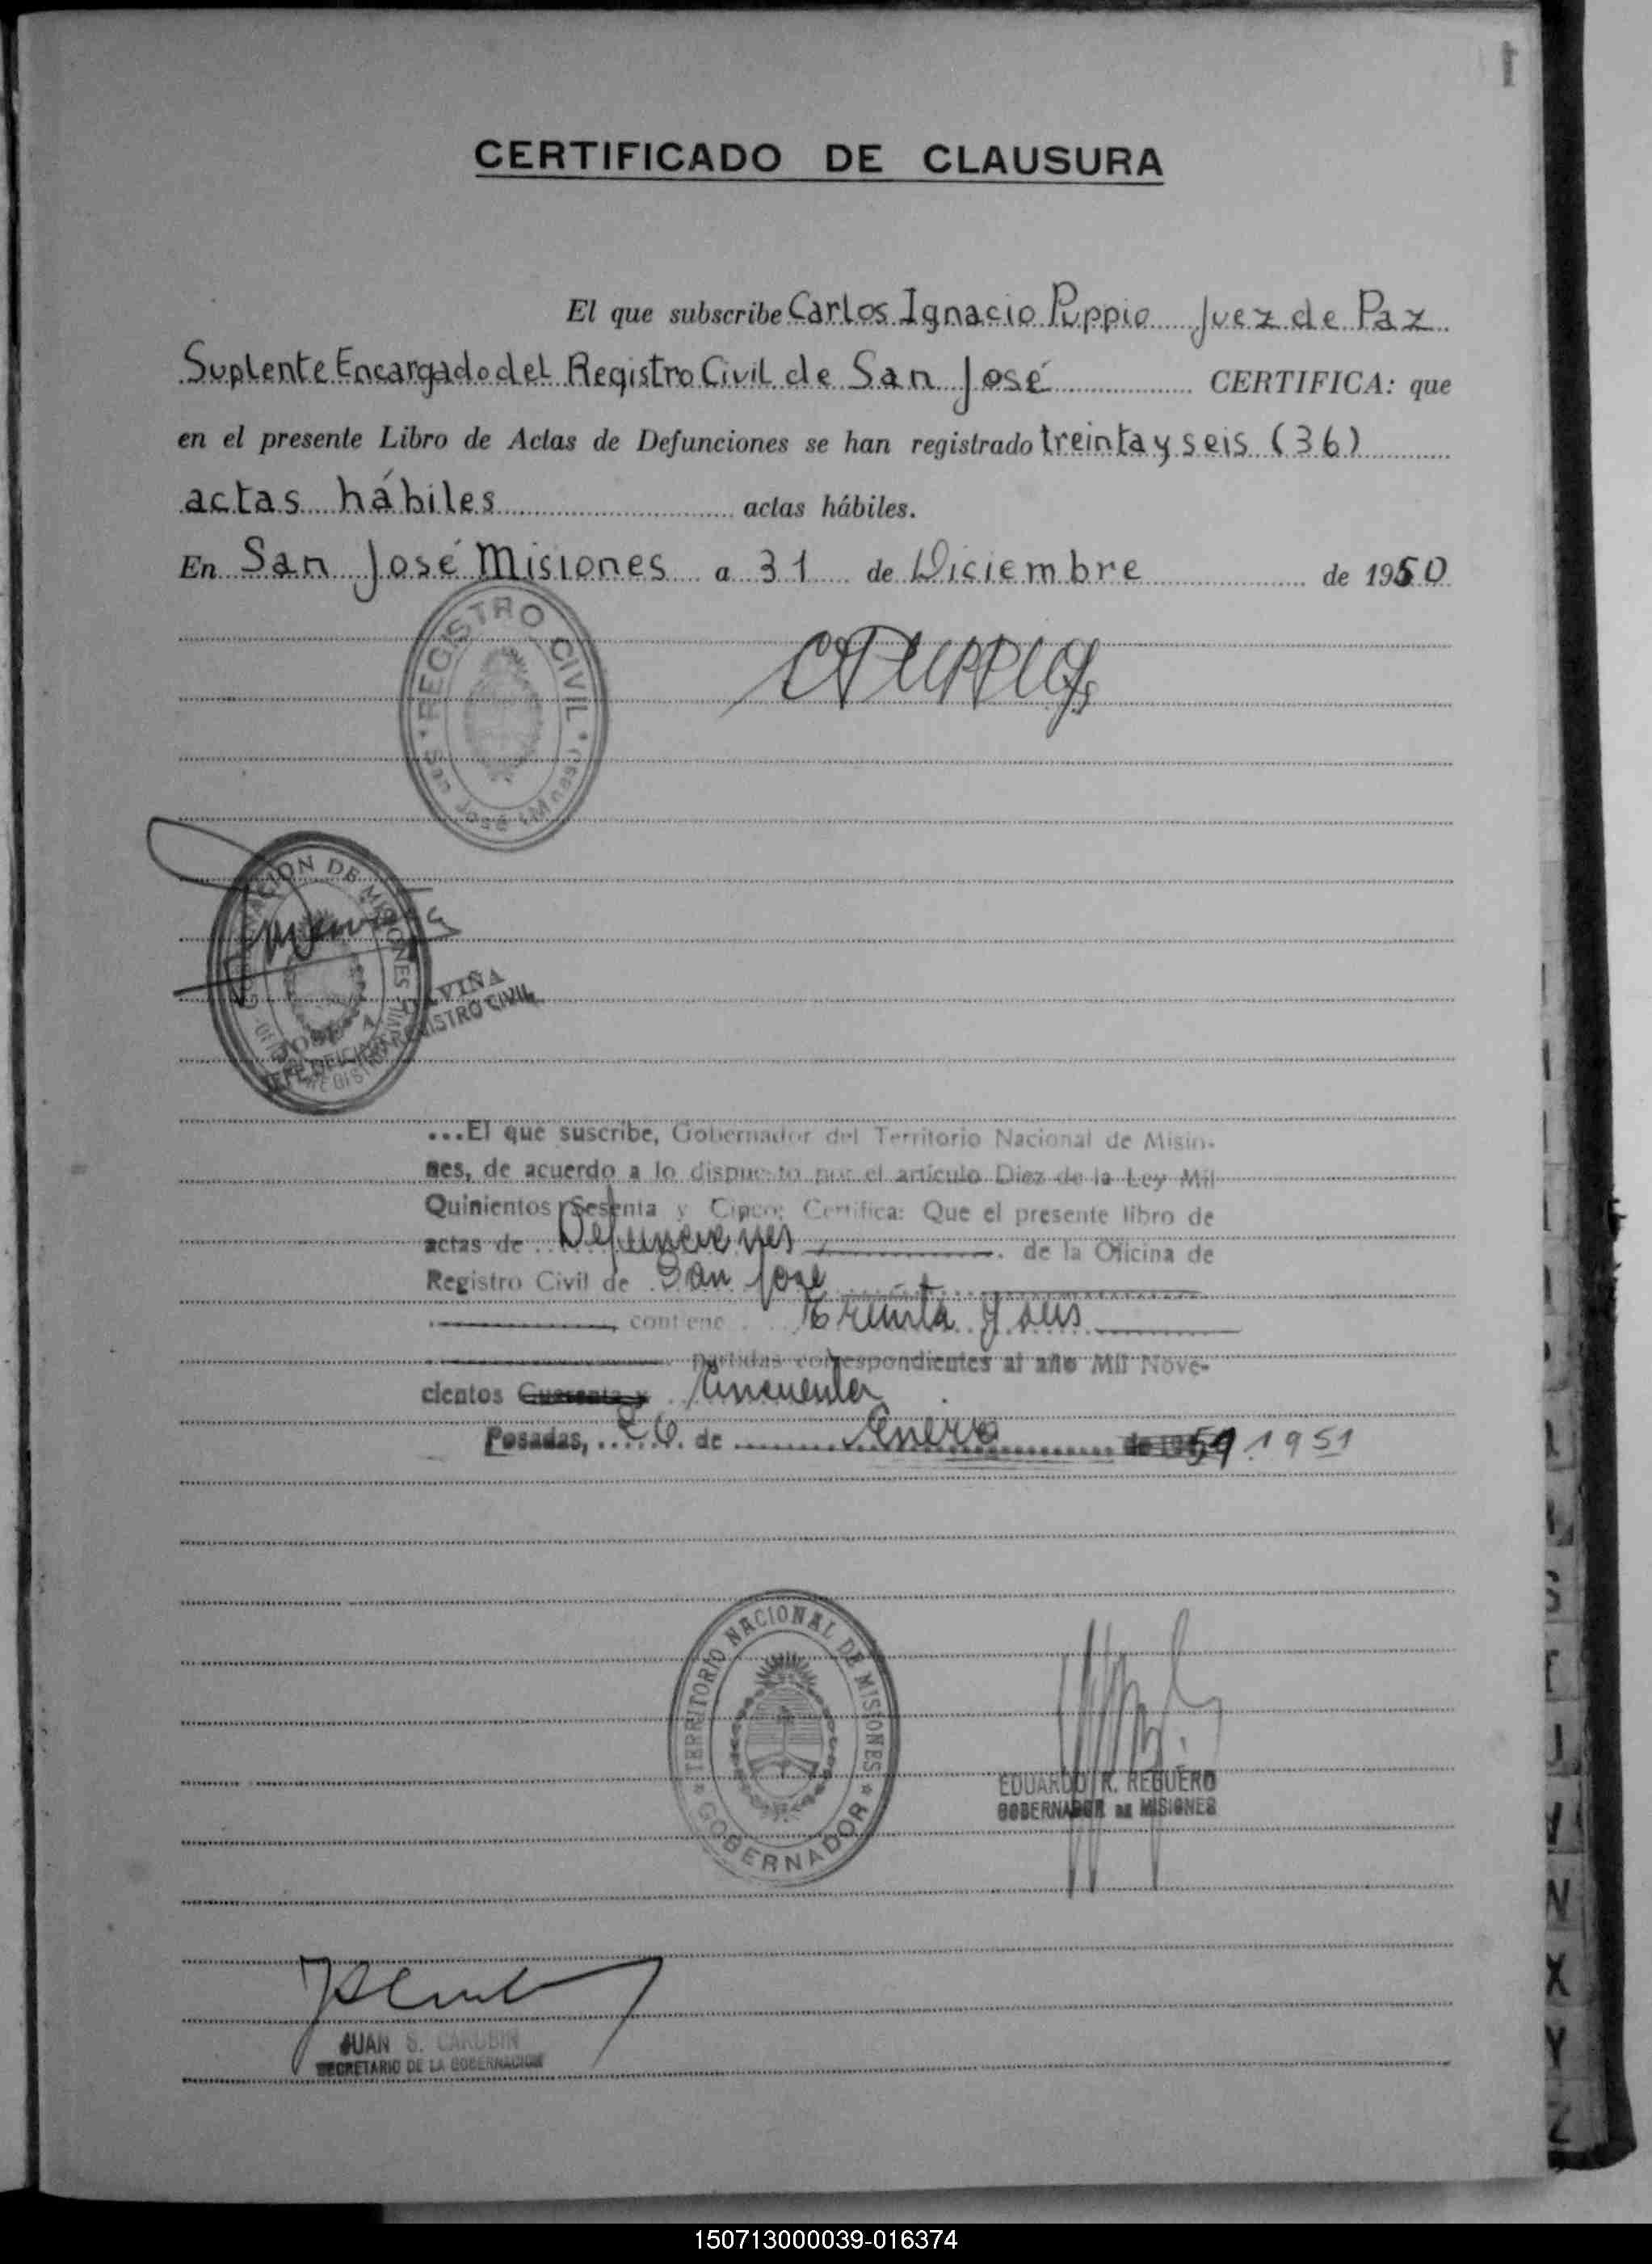 CERTIFICADO DE CLAUSURA
El que subscribe Carlos Ignacio Puppio Juez de Paz
Suplente Encargado del Registro Civil de San José CERTIFICA: que
en el presente Libro de Actas de Defunciones se han registrado treinta y seis (36)
actas hábiles actas hábiles.
En San José Misiones a 31 de Diciembre de 1950
REGISTRO CIVIL
San José (Mnes)
GOBERNACION DE MISIONES
JOSE A.
JEFE OFICINA REGISTRO CIVIL
...El que suscribe, Gobernador del Territorio Nacional de Misio-
nes, de acuerdo a lo dispuesto por el artículo Diez de la Ley Mil
Quinientos Sesenta y Cinco; Certifica: Que el presente libro de
actas de Defunciones de la Oficina de
Registro Civil de San José
contiene Treinta y seis
partidas correspondientes al año Mil Nove-
cientos Cuarenta y Cincuenta
Posadas, 26 de Enero de 1951 1951
TERRITORIO NACIONAL DE MISIONES
GOBERNADOR
EDUARDO R. REGUERO
GOBERNADOR DE MISIONES
JUAN S. CARUBIN
SECRETARIO DE LA GOBERNACION
N
X
Y
Z
150713000039-016374